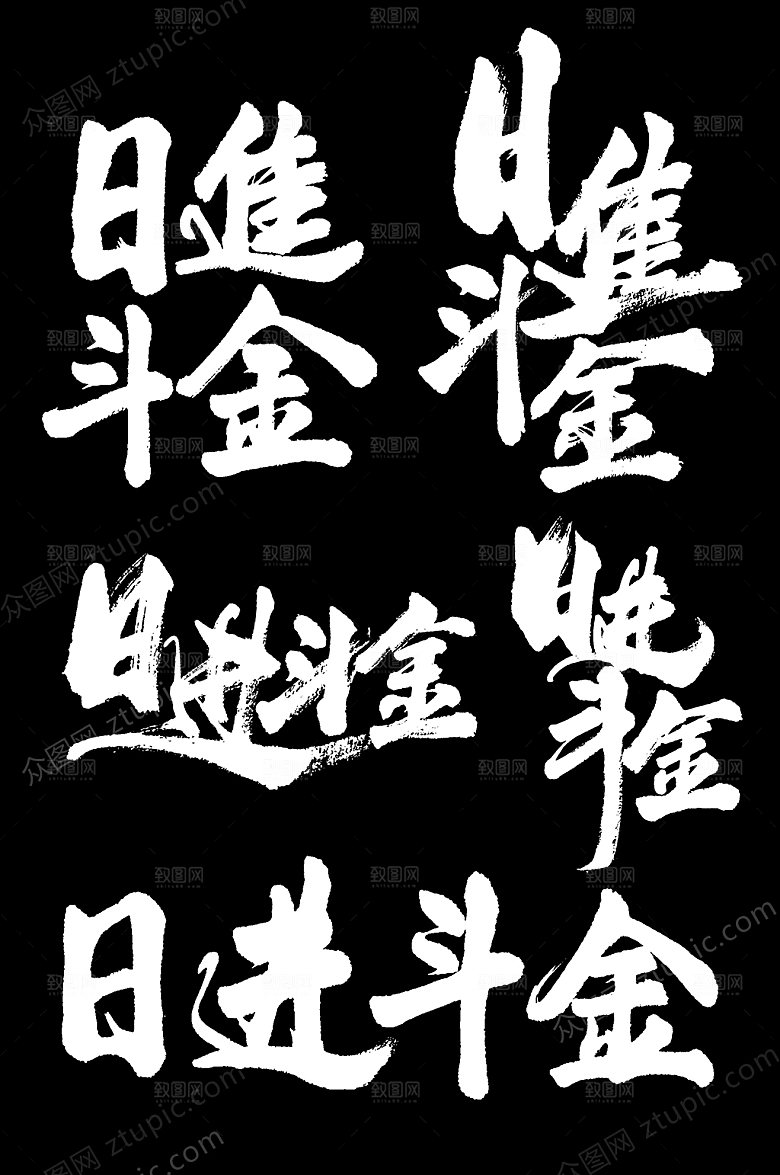 日進
斗金
日進
斗金
日进斗金
日进
斗金
日进斗金
众图网 ztupic.com
致图网